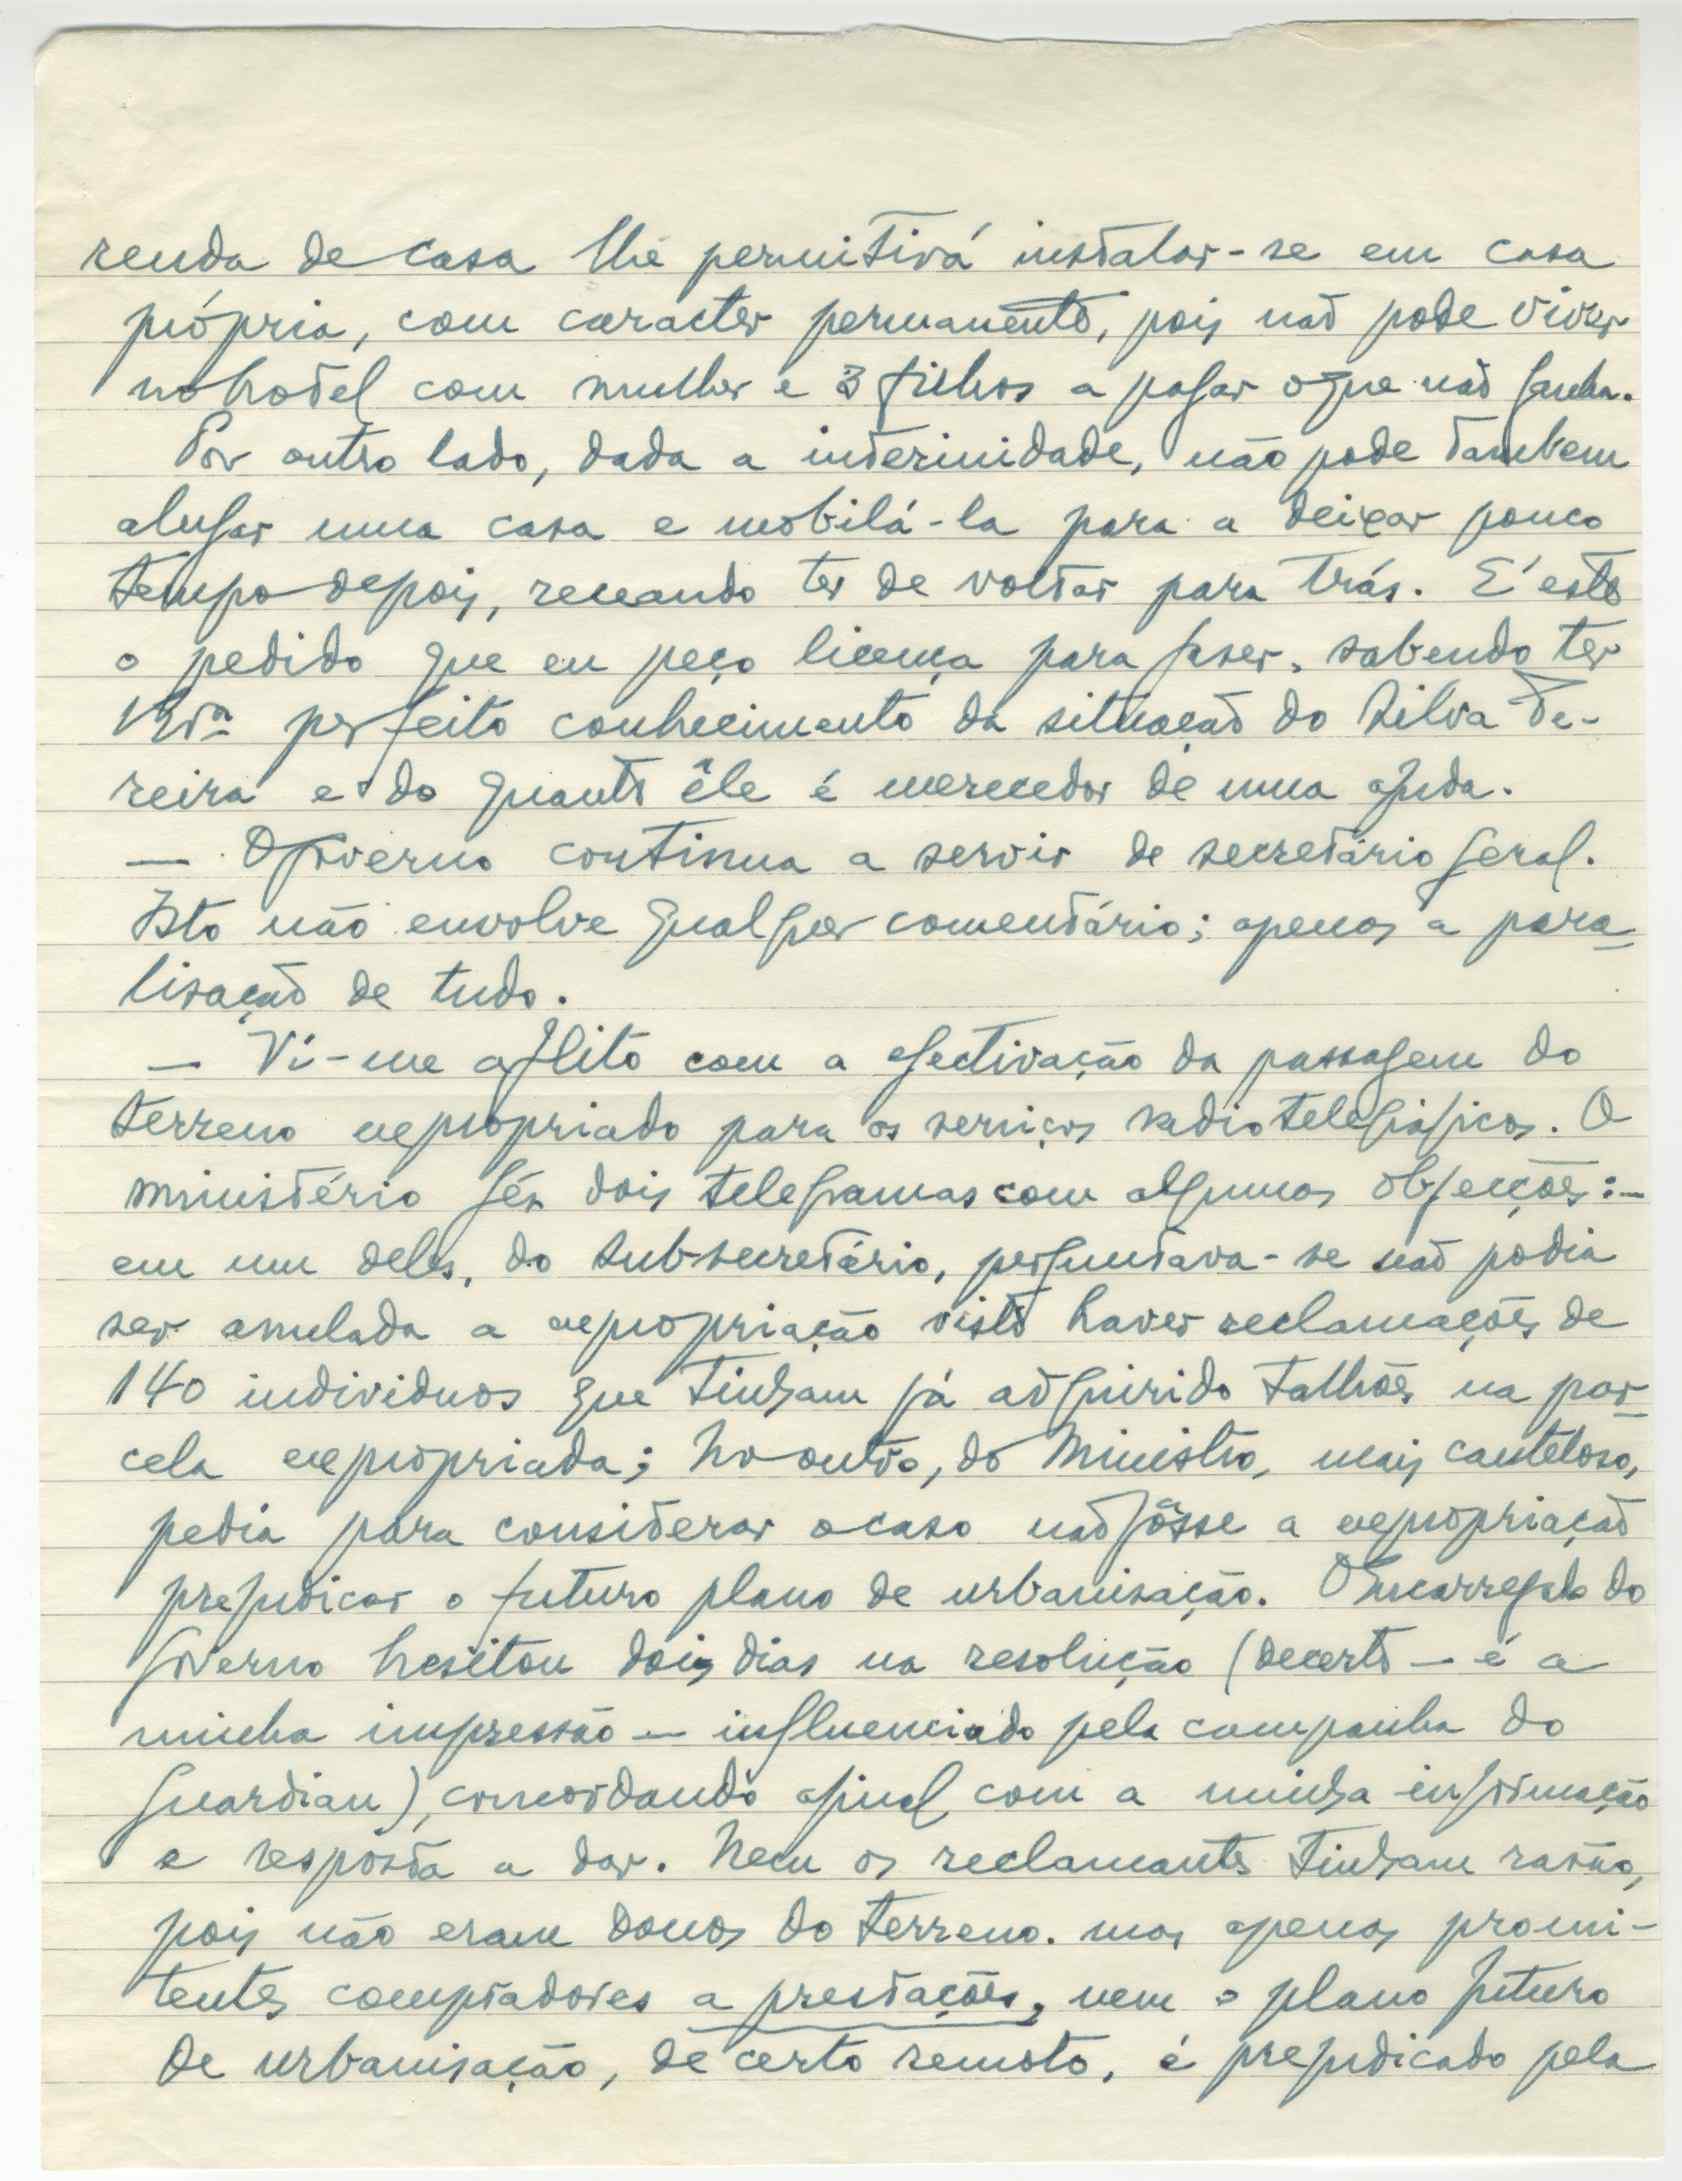 renda de casa lhe permitirá instalar-se em casa
própria, com caracter permanente, pois não pode viver
no hotel com mulher e 3 filhos a pagar o que não ganha.
Por outro lado, dada a interinidade, não pode tambem
alugar uma casa e mobilá-la para a deixar pouco
tempo depois, receando ter de voltar para trás. É este
o pedido que eu peço licença para faser, sabendo ter
perfeito conhecimento da situação do Silva Te-
reira e do quanto êle é merecedor de uma ajuda.
— O Governo continua a servir de secretário geral.
Isto não envolve qualquer comentário; apenas a para-
lisação de tudo.
— Vi-me aflito com a efectivação da passagem do
terreno expropriado para os serviços radiotelegráficos. O
ministério fés dois telegramas com algumas objecções:-
em um deles, do Sub-secretário, perguntava-se não podia
ser anulada a expropriação visto haver reclamações de
140 individuos que tinham já adquirido talhões na par-
cela expropriada; no outro, do Ministro, mais cauteloso,
pedia para considerar o caso não fôsse a expropriação
prejudicar o futuro plano de urbanisação. O Encarregado do
Governo hesitou dois dias na resolução (decerto — é a
minha impressão — influenciado pela campanha do
Guardian), concordando afinal com a minha informação
e resposta a dar. Nem os reclamantes tinham rasão,
pois não eram donos do terreno. mas apenas promi-
tentes compradores a prestações, nem o plano futuro
de urbanisação, de certo remoto, é prejudicado pela